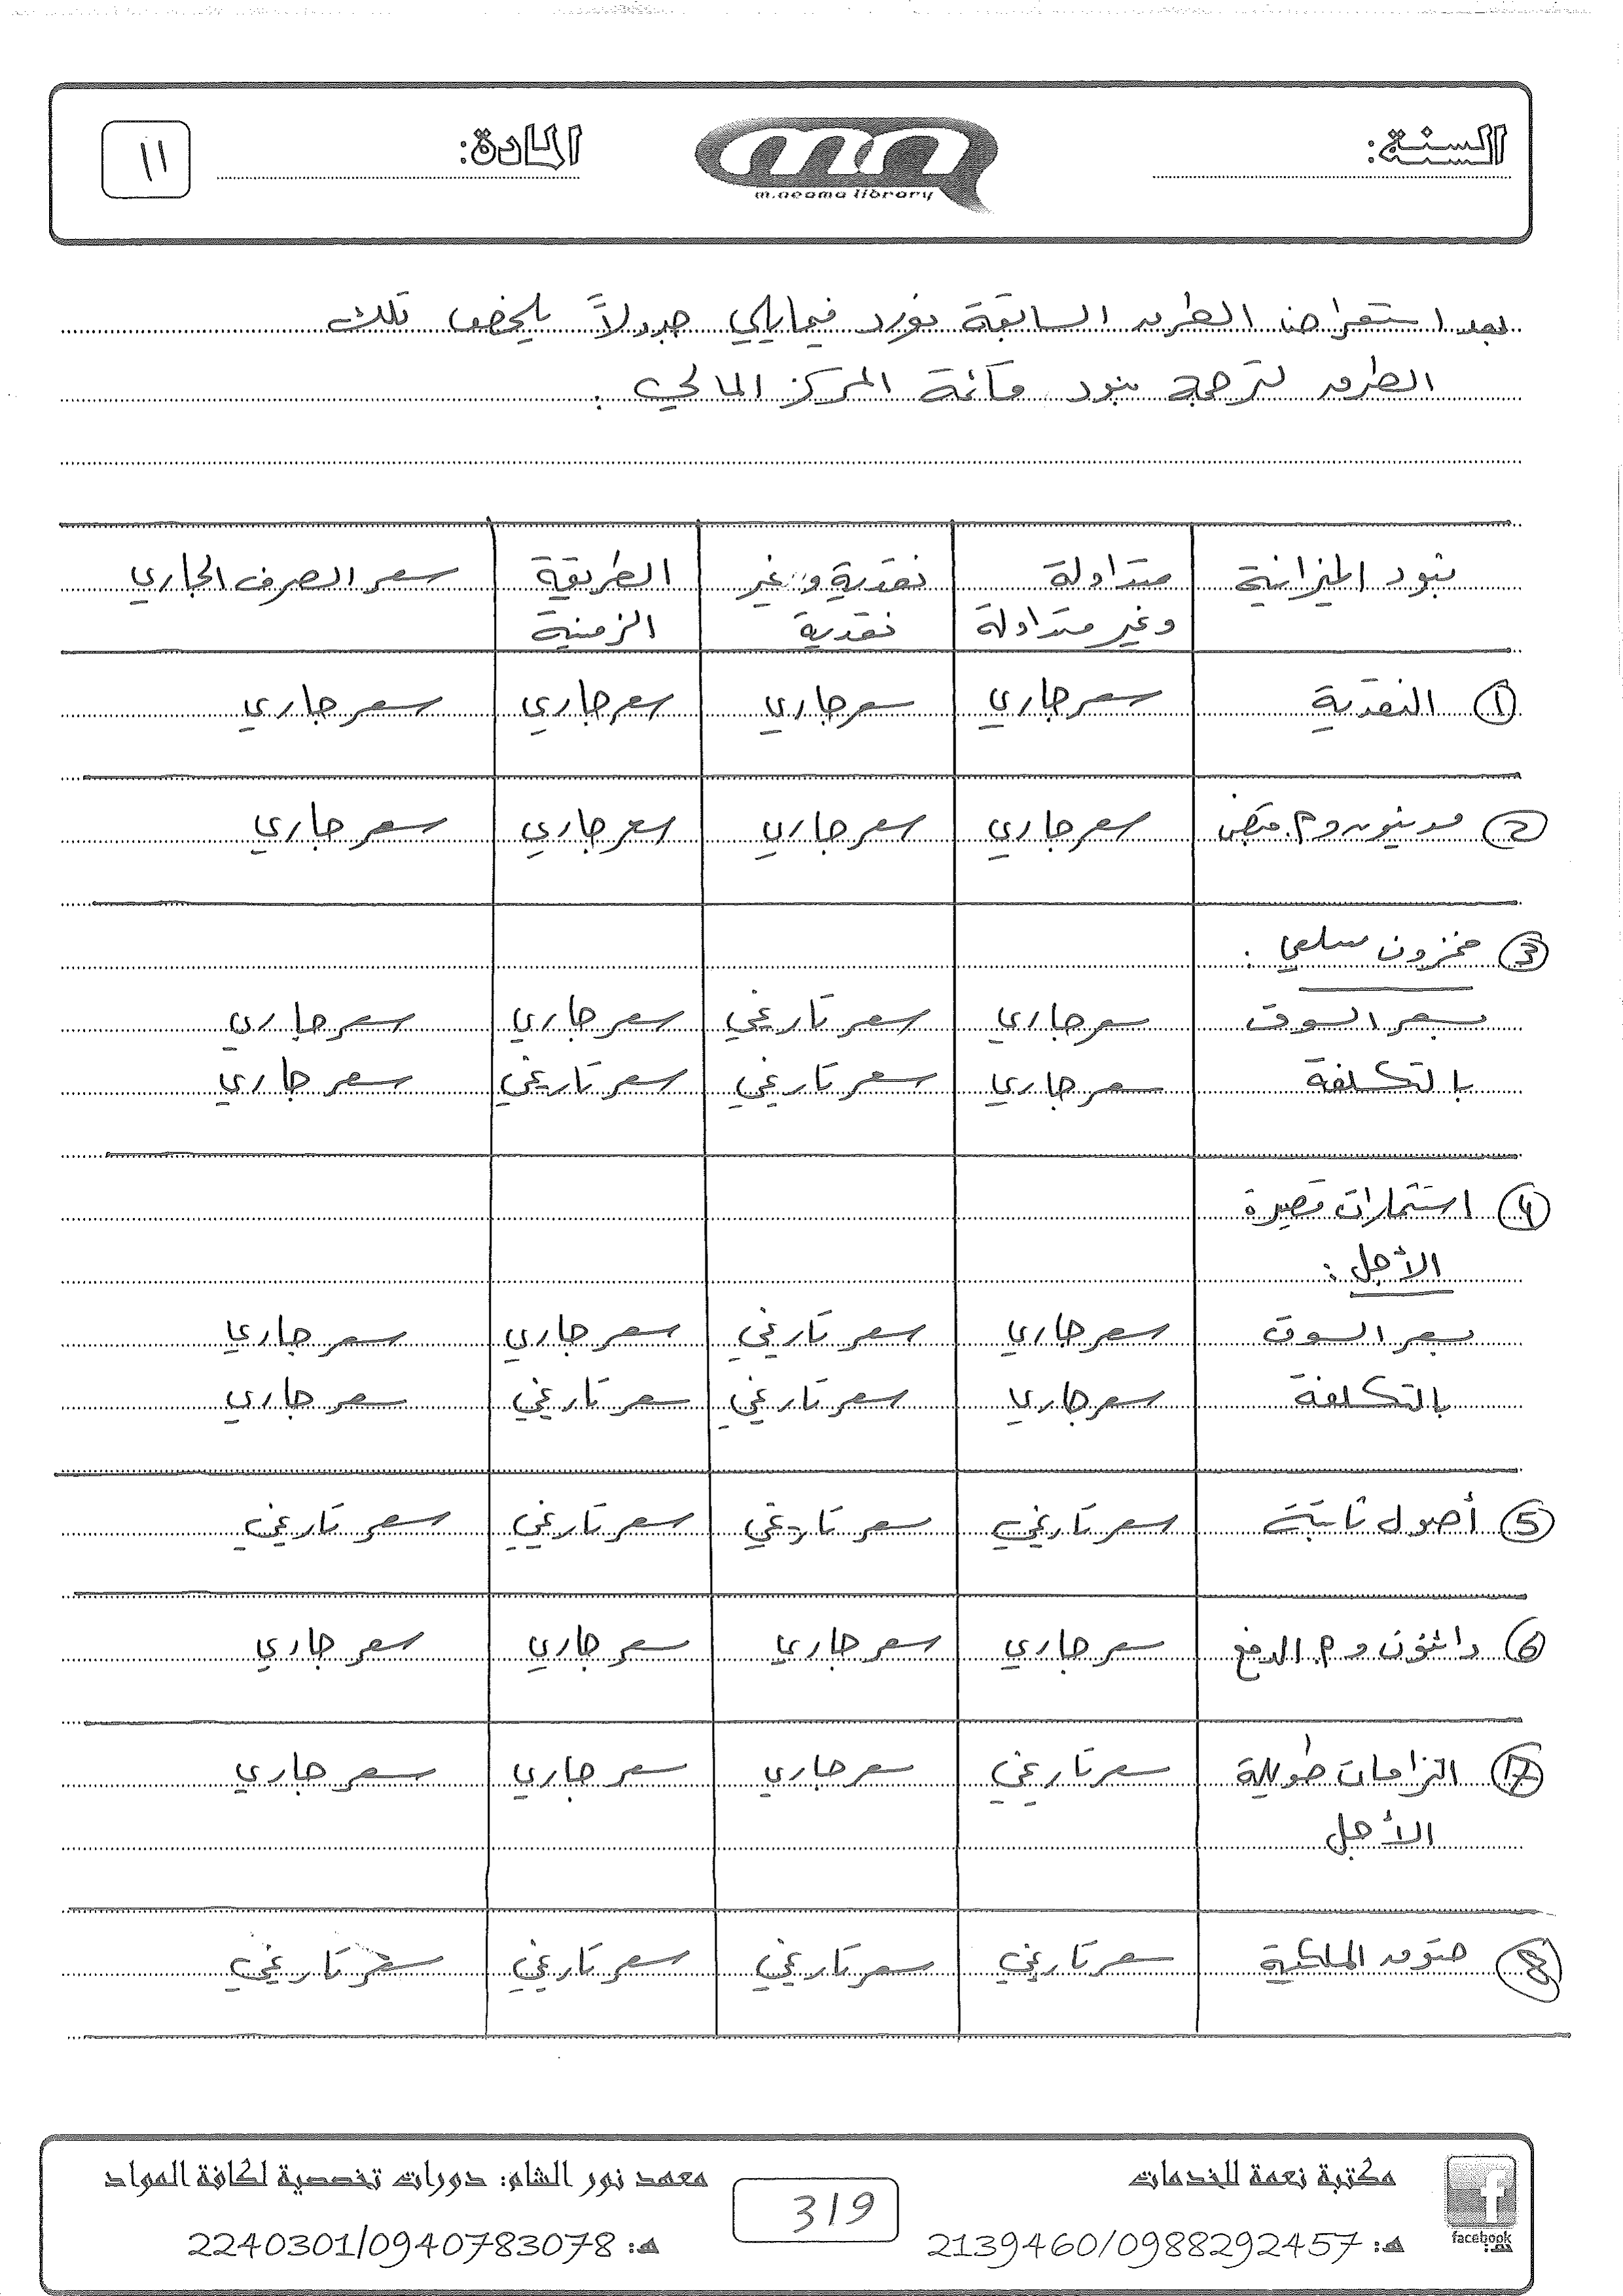 السنة:
المادة:
١١
m.neama library
بعد استعراض الطرق السابقة نورد فيمايلي جدولاً يلخص تلك
الطرق لترجمة بنود قائمة المركز المالي .
بنود الميزانية | متداولة وغير متداولة | نقدية وغير نقدية | الطريقة الزمنية | سعر الصرف الجاري
① النقدية | سعر جاري | سعر جاري | سعر جاري | سعر جاري
② مدينون و م. قبض | سعر جاري | سعر جاري | سعر جاري | سعر جاري
③ مخزون سلعي :
بسعر السوق | سعر جاري | سعر تاريخي | سعر جاري | سعر جاري
بالتكلفة | سعر جاري | سعر تاريخي | سعر تاريخي | سعر جاري
④ استثمارات قصيرة
الأجل :
بسعر السوق | سعر جاري | سعر تاريخي | سعر جاري | سعر جاري
بالتكلفة | سعر جاري | سعر تاريخي | سعر تاريخي | سعر جاري
⑤ أصول ثابتة | سعر تاريخي | سعر تاريخي | سعر تاريخي | سعر تاريخي
⑥ دائنون و م. الدفع | سعر جاري | سعر جاري | سعر جاري | سعر جاري
⑦ التزامات طويلة | سعر تاريخي | سعر جاري | سعر جاري | سعر جاري
الأجل
⑧ حقوق الملكية | سعر تاريخي | سعر تاريخي | سعر تاريخي | سعر تاريخي
مكتبة نعمة للخدمات
هـ: 2139460/0988292457
facebook
319
معهد نور الشام: دورات تخصصية لكافة المواد
هـ: 2240301/0940783078